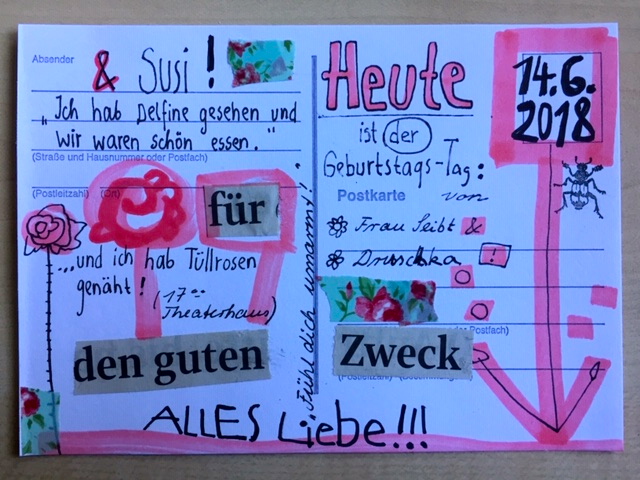 Absender
& Susi !
„Ich hab Delfine gesehen und
wir waren schön essen."
(Straße und Hausnummer oder Postfach)
(Postleitzahl) (Ort)
für
...und ich hab Tüllrosen
genäht! (17⁰⁰
Theaterhaus)
den guten
Fühl dich umarmt!
Heute
ist der
Geburtstags-Tag:
Postkarte von
Frau Seibt &
Druschka !
Postfach)
Zweck
(Postleitzahl)
14.6.
2018
ALLES Liebe!!!